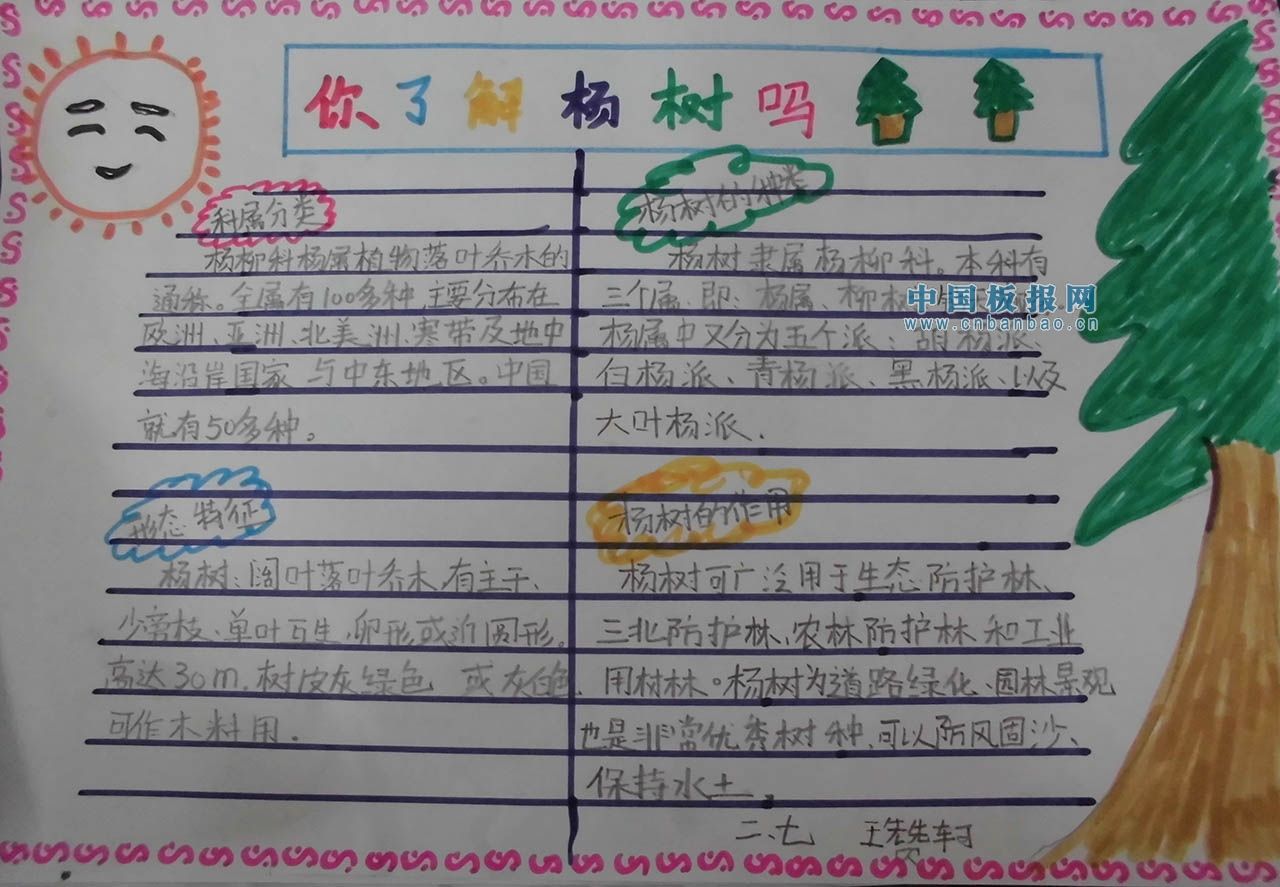 你了解杨树吗
科属分类
杨柳科杨属植物落叶乔木的
通称。全属有100多种,主要分布在
欧洲、亚洲、北美洲、寒带及地中
海沿岸国家与中东地区。中国
就有50多种。
杨树的种类
杨树隶属杨柳科。本科有
三个属,即:杨属、柳
中国板报网
www.cnbanbao.cn
杨属中又分为五个派:胡杨派、
白杨派、青杨派、黑杨派、以及
大叶杨派.
形态特征
杨树:阔叶落叶乔木,有主干、
少旁枝、单叶互生,卵形或近圆形。
高达30m,树皮灰绿色 或灰白色,
可作木料用.
杨树的作用
杨树可广泛用于生态防护林、
三北防护林、农林防护林和工业
用材林。杨树为道路绿化、园林景观
也是非常优秀树种,可以防风固沙、
保持水土。
二、七 王